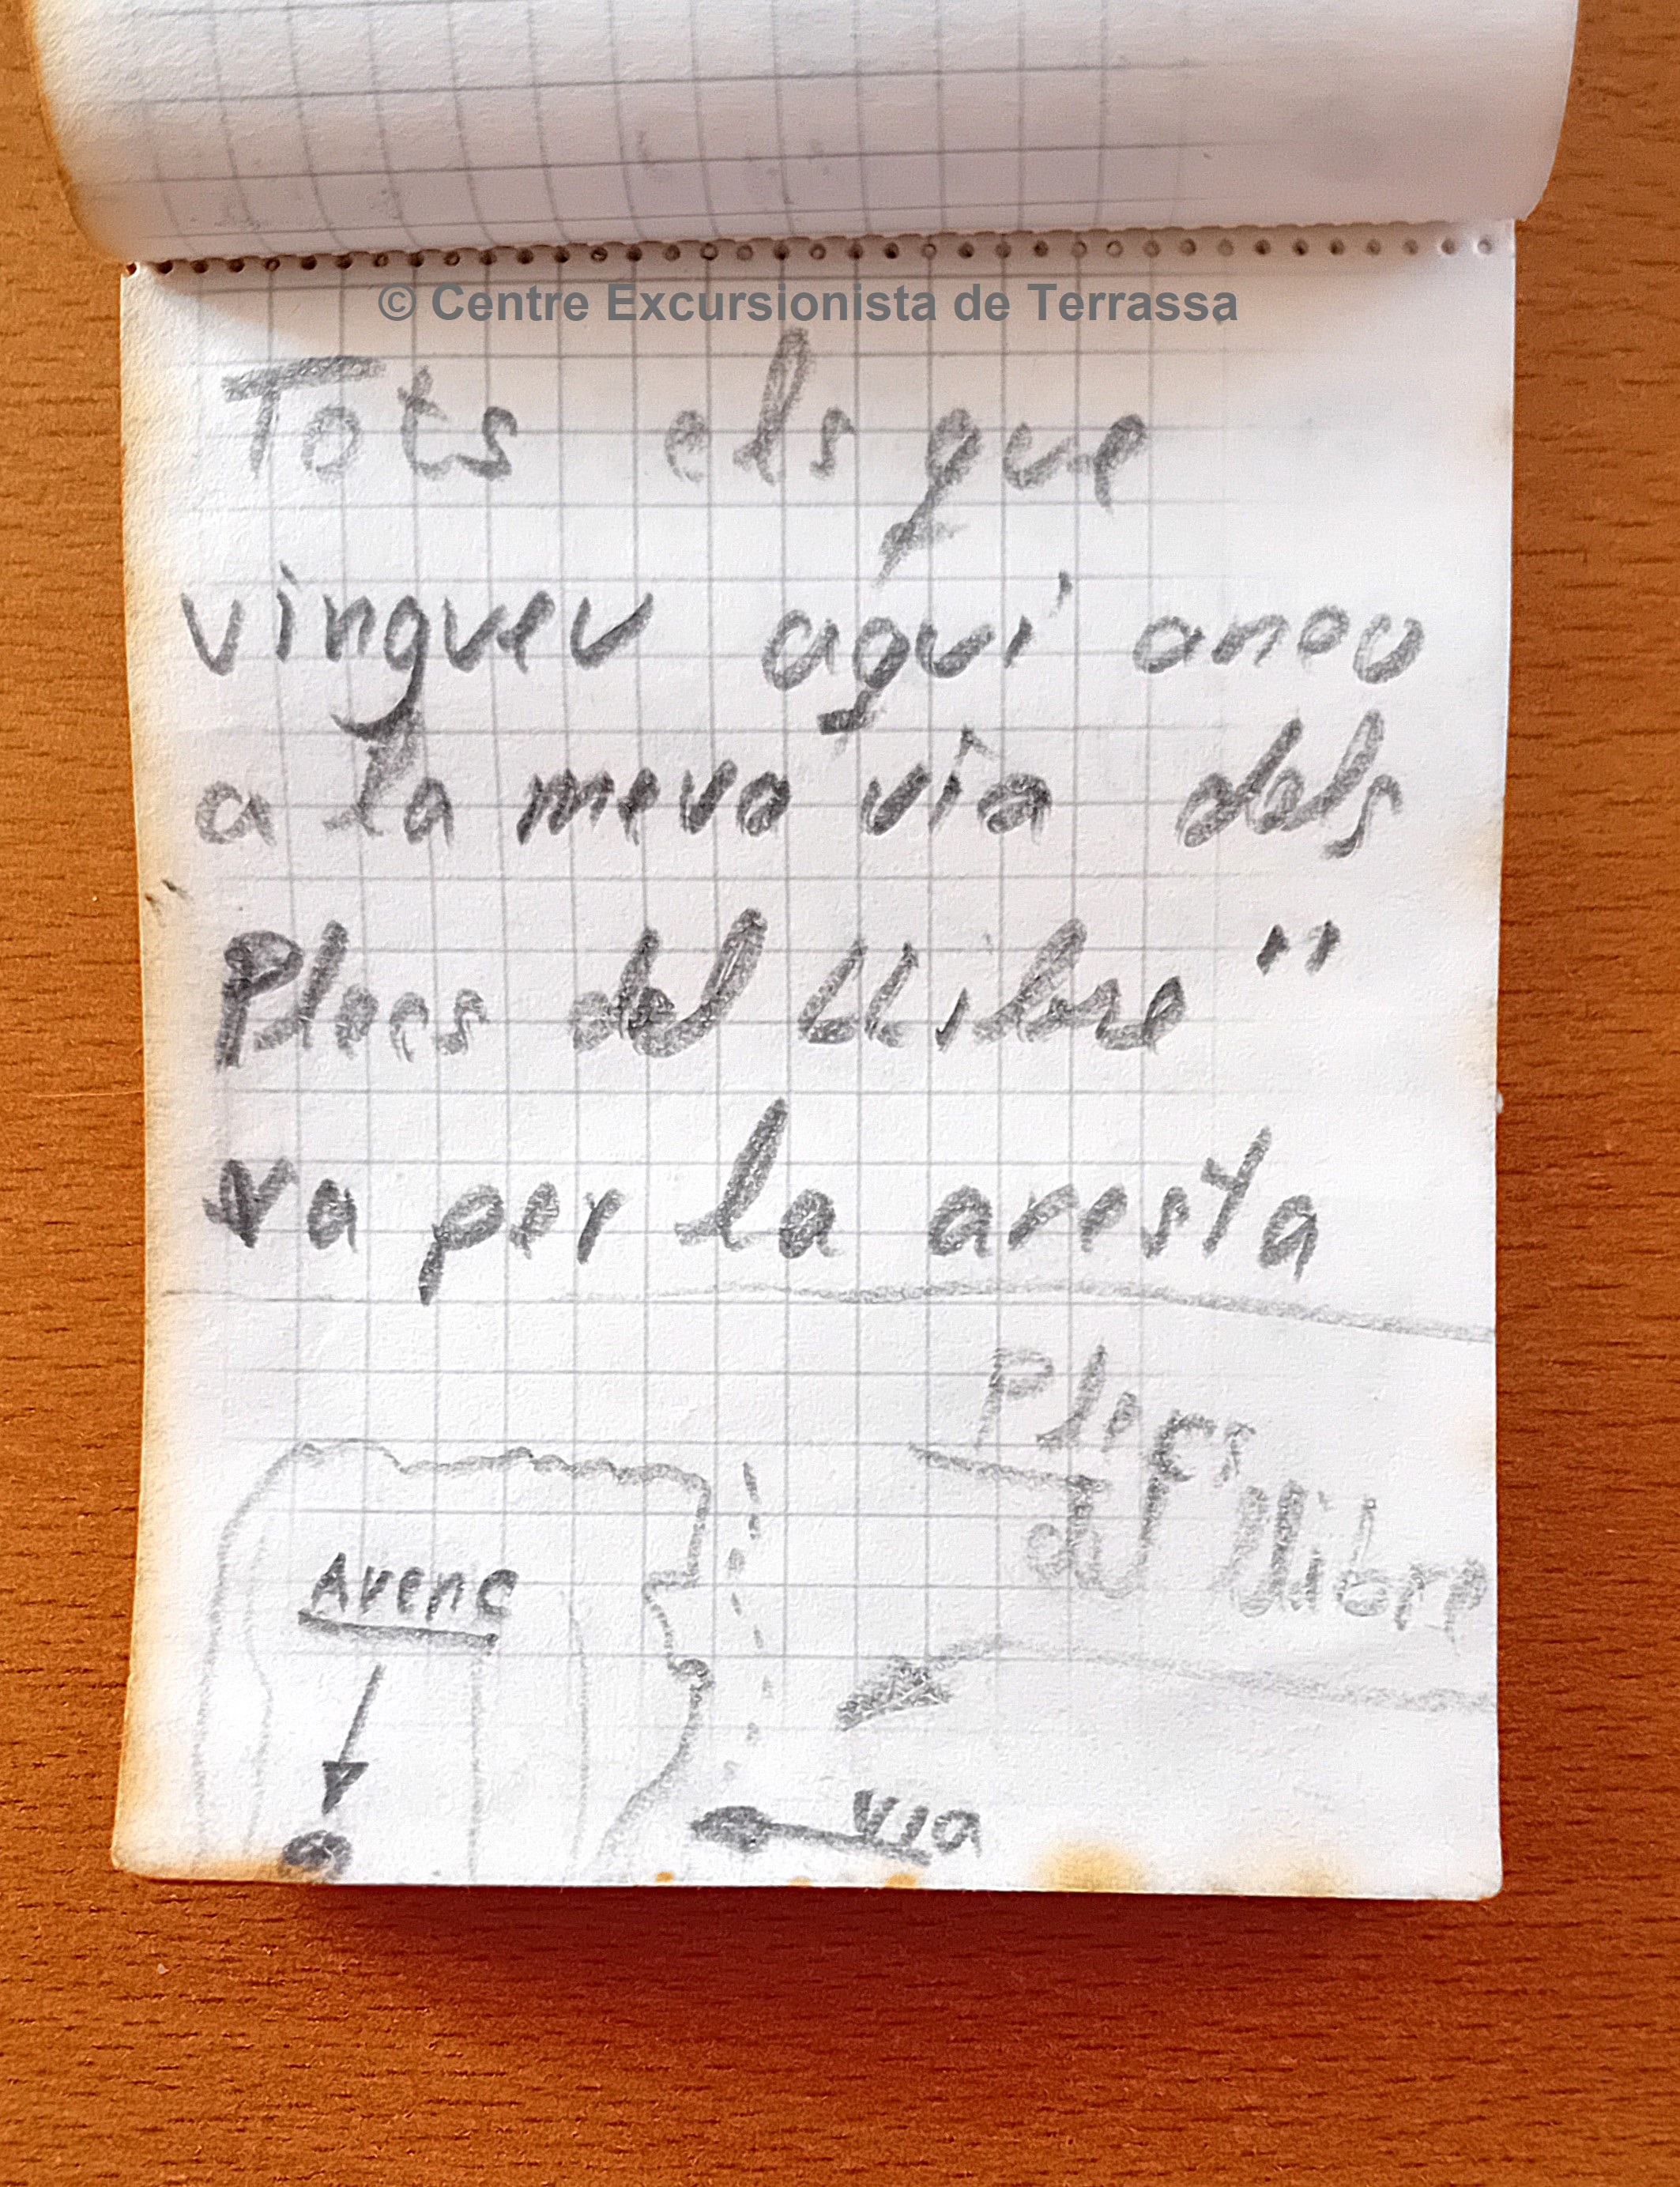 © Centre Excursionista de Terrassa
Tots els que
vingueu aquí aneu
a la meva via dels
Plecs del Llibre"
va per la aresta
Plecs
del Llibre
Avenc
Via